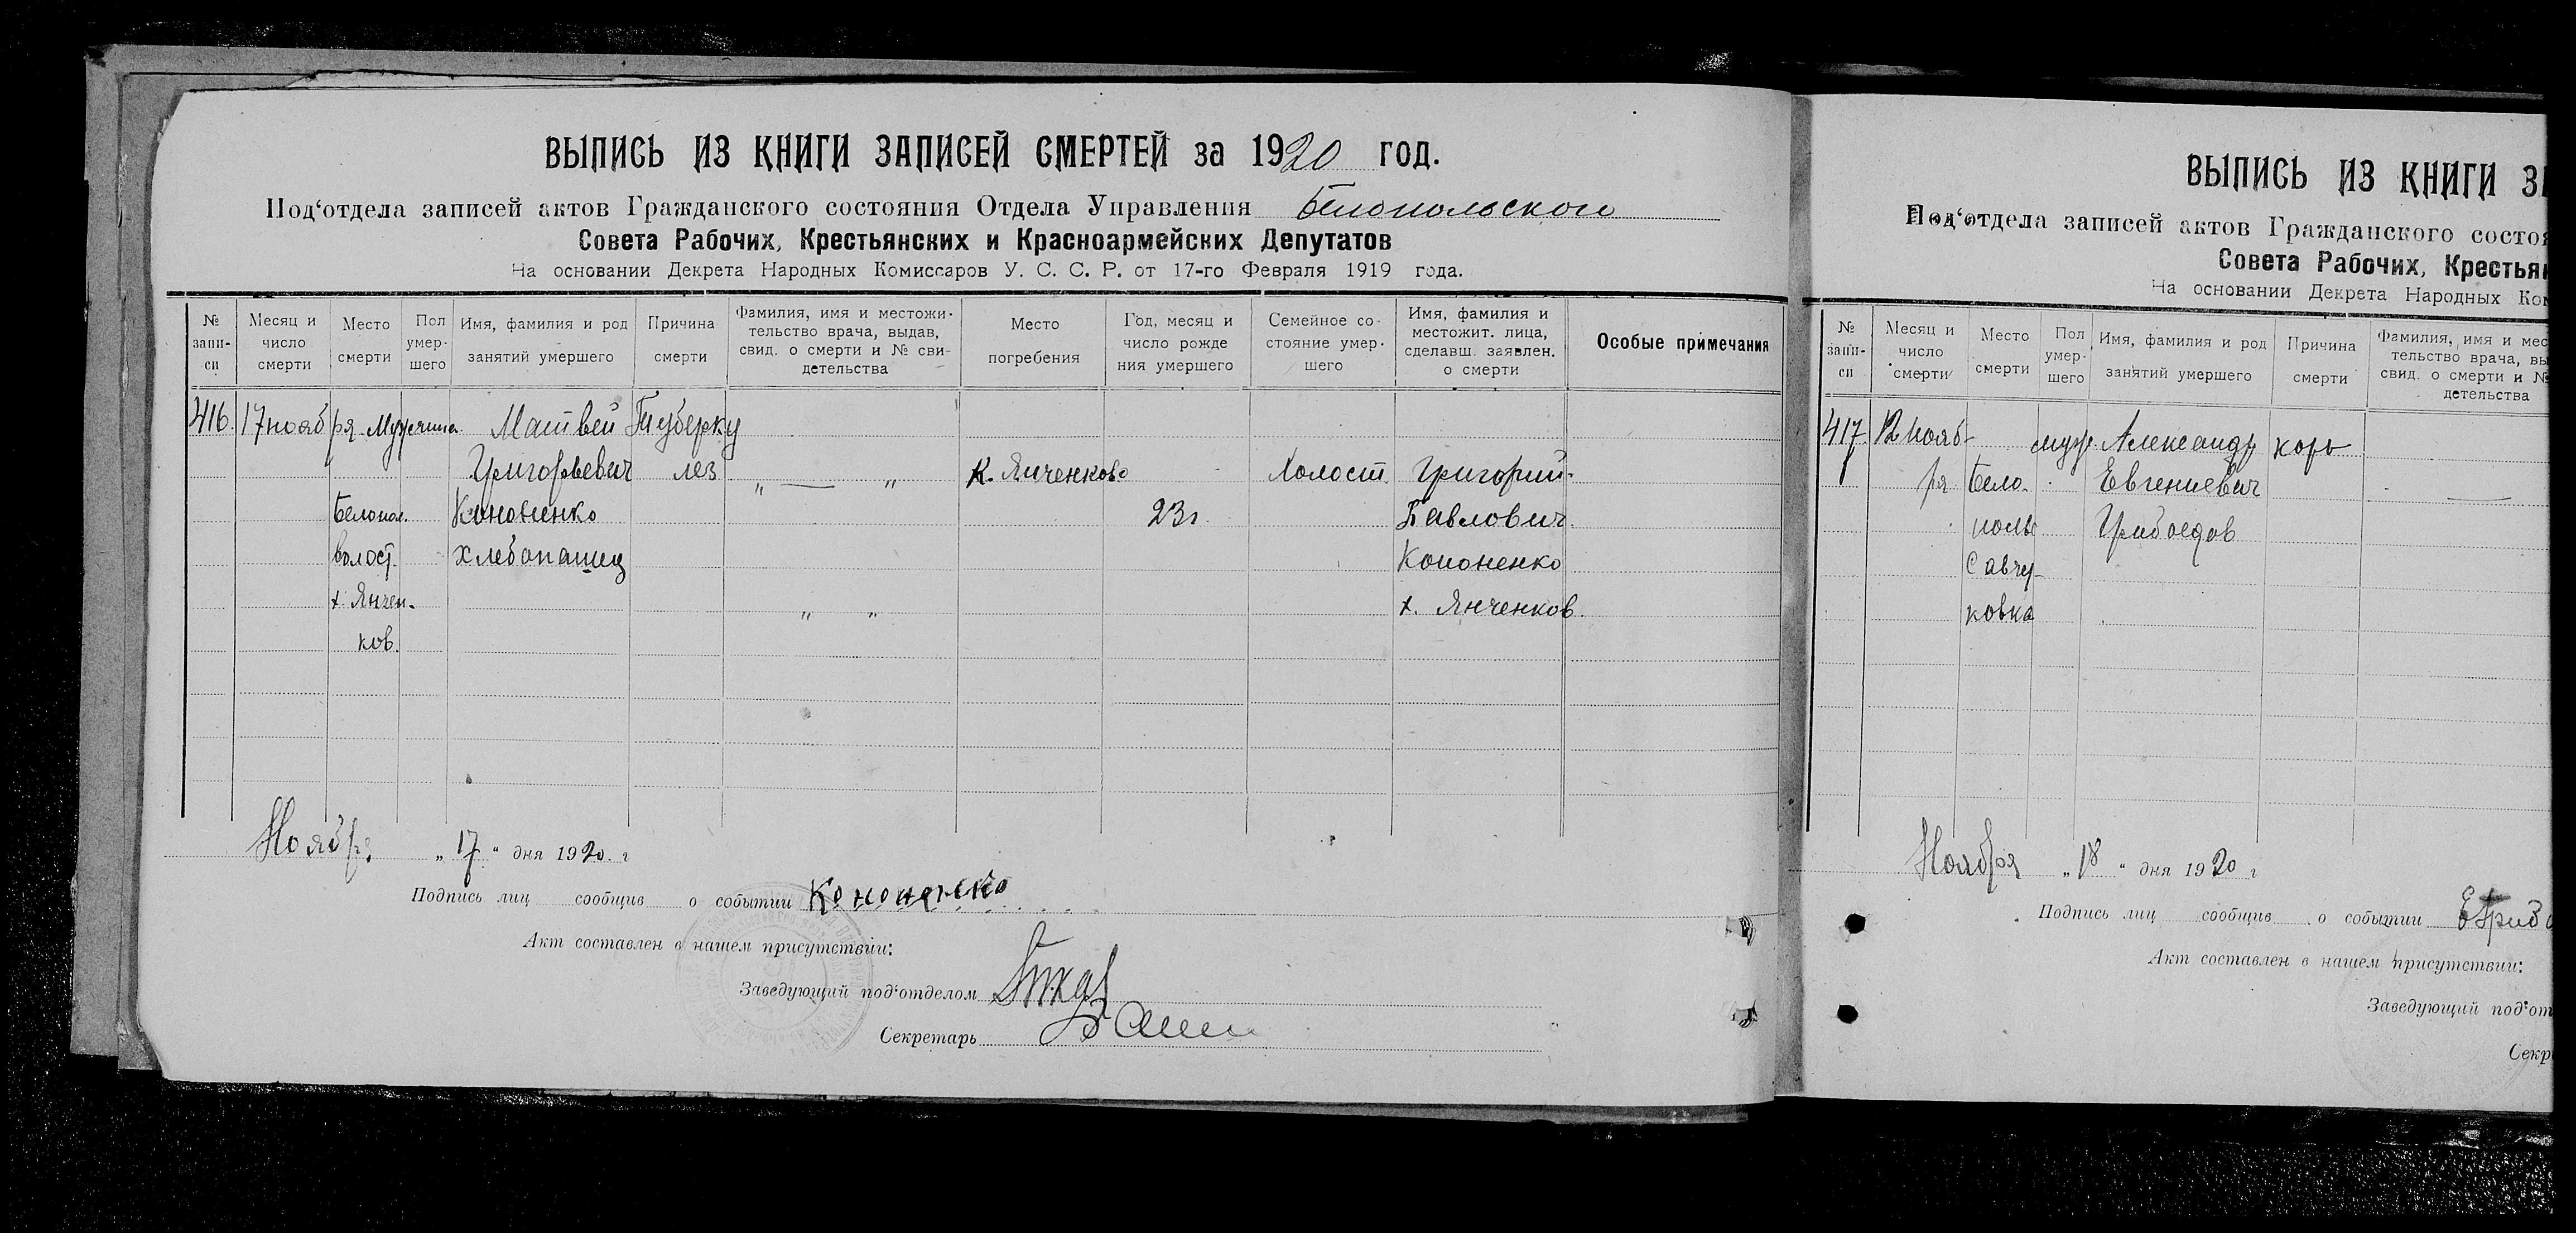 ВЫПИСЬ ИЗ КНИГИ ЗАПИСЕЙ СМЕРТЕЙ за 1920 год.
Под‘отдела записей актов Гражданского состояния Отдела Управления Белопольского
Совета Рабочих, Крестьянских и Красноармейских Депутатов
На основании Декрета Народных Комиссаров У. С. С. Р. от 17-го Февраля 1919 года.
№ запи-си
Месяц и число смерти
Место смерти
Пол умер-шего
Имя, фамилия и род занятий умершего
Причина смерти
Фамилия, имя и местожи-тельство врача, выдав, свид. о смерти и № сви-детельства
Место погребения
Год, месяц и число рожде ния умершего
Семейное со-стояние умер-шего
Имя, фамилия и местожит. лица, сделавш. заявлен. о смерти
Особые примечания
416. 17 ноября Мужчина Матвей Туберку
Григорьевич лез " — " К. Янченково Холост Григорий
Белопол. Кононенко 23 г. Павлович
волост. хлебопашец Кононенко
х. Янчен- " " х. Янченков.
ков.
Ноября „ 17 “ дня 1920 г
Подпись лиц сообщив о событии Кононенко
Акт составлен в нашем присутствии:
Заведующий под‘отделом
Секретарь
ВЫПИСЬ ИЗ КНИГИ
Под‘отдела записей актов Гражданского состоя
Совета Рабочих, Крестьян
На основании Декрета Народных Ком
№ запи-си
Месяц и число смерти
Место смерти
Пол умер-шего
Имя, фамилия и род занятий умершего
Причина смерти
Фамилия, имя и мес тельство врача, вы свид. о смерти и № детельства
417. 12 нояб- муж. Александр корь
ря Бело- Евгениевич —
полье Грибоедов
Савчу-
ковка
Ноября „ 18 “ дня 1920 г
Подпись лиц сообщив о событии ЕГрибо
Акт составлен в нашем присутствии:
Заведующий под‘от
Секр